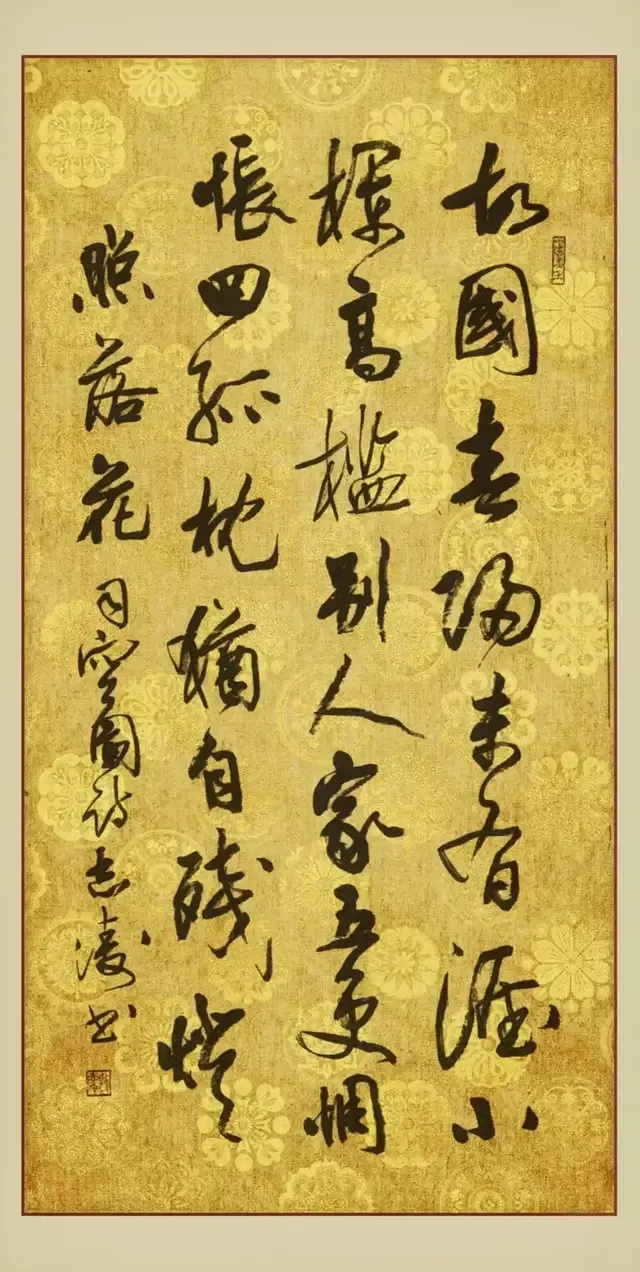 故國春歸未有涯小
欄高檻别人家五更惆
悵回孤枕猶自殘燈
照落花 司空圖詩 志 書